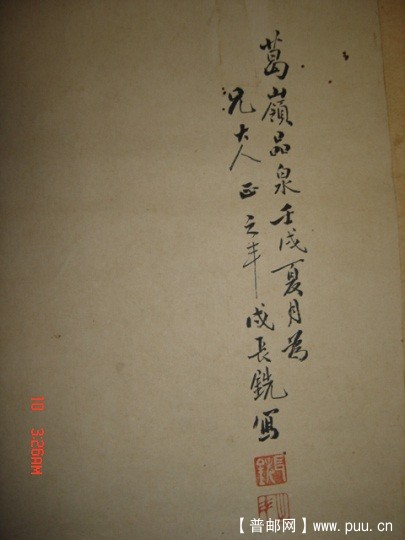 葛嶺品泉壬戌夏月為
兄大人正之丰戌長銑寫
10 3:26AM
【普邮网】www.puu.cn